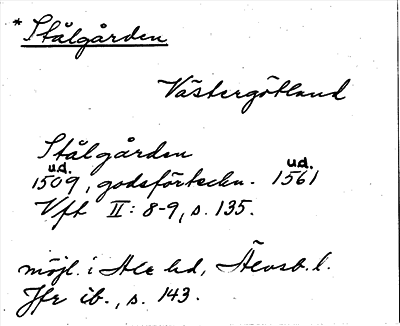 * Stålgården
Västergötland
Stålgården
ud. ud.
1509, godsförteckn. 1561
Vft II: 8-9, s. 135.
möjl. i Ale hd, Älvsb. l.
Jfr ib., s. 143.